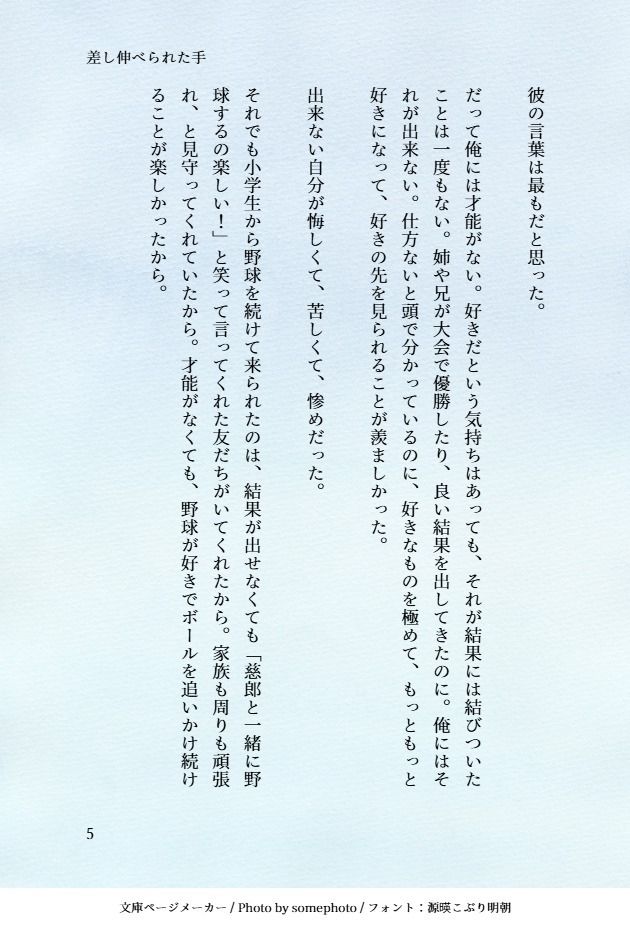 差し伸べられた手
彼の言葉は最もだと思った。
だって俺には才能がない。好きだという気持ちはあっても、それが結果には結びついた
ことは一度もない。姉や兄が大会で優勝したり、良い結果を出してきたのに。俺にはそ
れが出来ない。仕方ないと頭で分かっているのに、好きなものを極めて、もっともっと
好きになって、好きの先を見られることが羨ましかった。
出来ない自分が悔しくて、苦しくて、惨めだった。
それでも小学生から野球を続けて来られたのは、結果が出せなくても「慈郎と一緒に野
球するの楽しい！」と笑って言ってくれた友だちがいてくれたから。家族も周りも頑張
れ、と見守ってくれていたから。才能がなくても、野球が好きでボールを追いかけ続け
ることが楽しかったから。
5
文庫ページメーカー / Photo by somephoto / フォント：源暎こぶり明朝